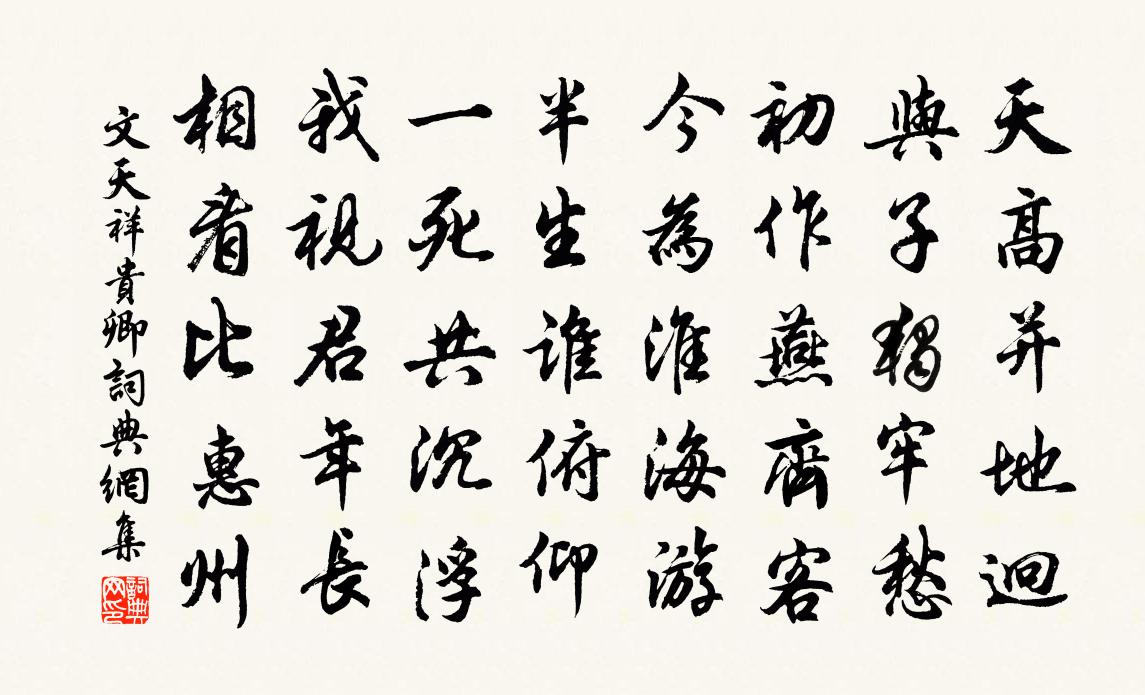 天高并地迥
與子獨牢愁
初作燕齊客
今為淮海游
半生誰俯仰
一死共沉浮
我視君年長
相看比惠州
文天祥貴卿詞典網集
詞典網印